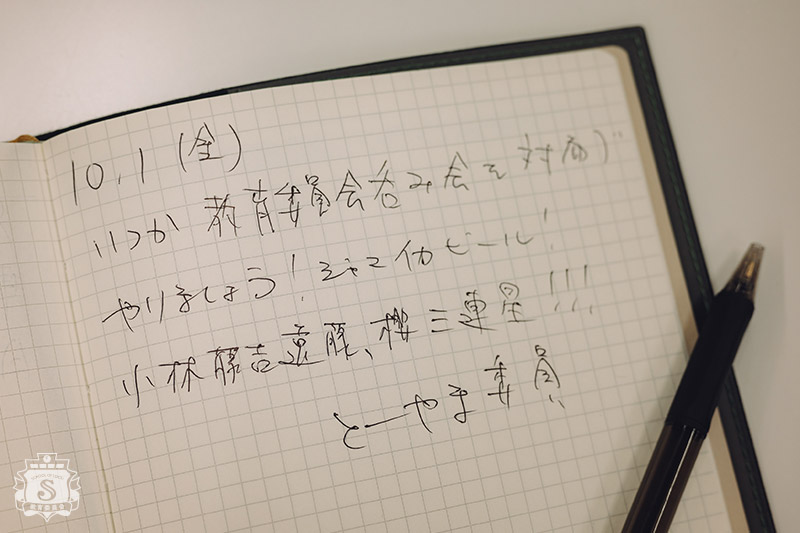 10.1 (金)
いつか 教育委員会呑み会を対面で
やりましょう! ビール!
小林藤吉遠藤、櫻三連星!!!
とーやま委員
S